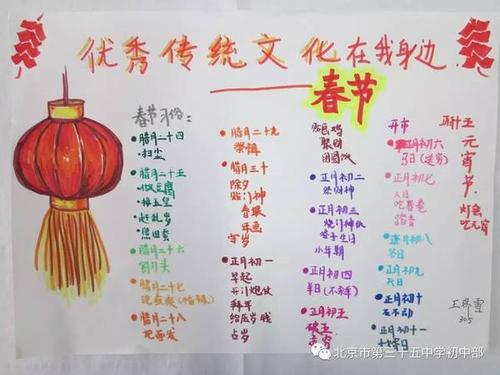 优秀传统文化在我身边
春节
春节习俗:
腊月二十四
扫尘
腊月二十五
做豆腐
接玉皇
赶乱岁
照田蚕
腊月二十六
腊月二十七
腊月二十八
把面发
腊月二十九
腊月三十
除夕
贴门神
春联
年画
守岁
正月初一
早起
开门炮仗
拜年
给压岁钱
占岁
聚财
团圆饭
正月初二
祭财神
正月初三
烧门神纸
小年朝
正月初四
羊日(不宰羊)
正月初五
破五
开市
正月初六
马日(送穷)
正月初七
人日
踏青
正月初八
谷日
正月初九
天日
正月初十
石不动
正月初十一
正月十五
元宵节
灯会
吃元宵
305
北京市第三十五中学初中部